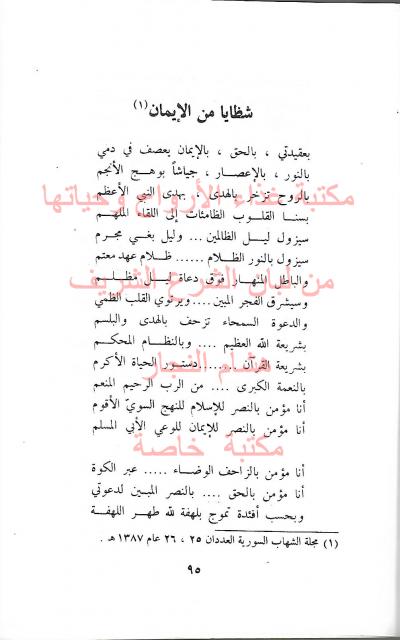 شظايا من الإيمان (١)
بعقيدتي ، بالحق ، بالإيمان يعصف في دمي
بالنور ، بالإعصار ، جياشاً بوهج الأنجم
بالروح تزخر بالهدى ، بهدى النبي الأعظم
مكتبة غذاء الأرواح وحياتها
بسنا القلوب الظامئات إلى اللقاء الملهم
سيزول ليل الظالمين ... وليل بغي مجرم
سيزول بالنور الظلام ...... ظلام عهد معتم
والباطل المنهار فوق دعاة ليل مظلم
من لبان الشرع الشريف
وسيشرق الفجر المبين .... ويرتوي القلب الظمي
والدعوة السمحاء تزحف بالهدى والبلسم
بشريعة الله العظيم .... وبالنظام المحكم
بشريعة القرآن ........ دستور الحياة الأكرم
هشام النجار
بالنعمة الكبرى .... من الرب الرحيم المنعم
أنا مؤمن بالنصر للإسلام للنهج السويّ الأقوم
أنا مؤمن بالنصر للإيمان للوعي الأبي المسلم
مكتبة خاصة
أنا مؤمن بالزاحف الوضاء ..... عبر الكوة
أنا مؤمن بالحق .... بالنصر المبين لدعوتي
وبحسب أفئدة تموج بلهفة لله طهر اللهفة
(١) مجلة الشهاب السورية العددان ٢٥ ، ٢٦ عام ١٣٨٧ هـ .
٩٥